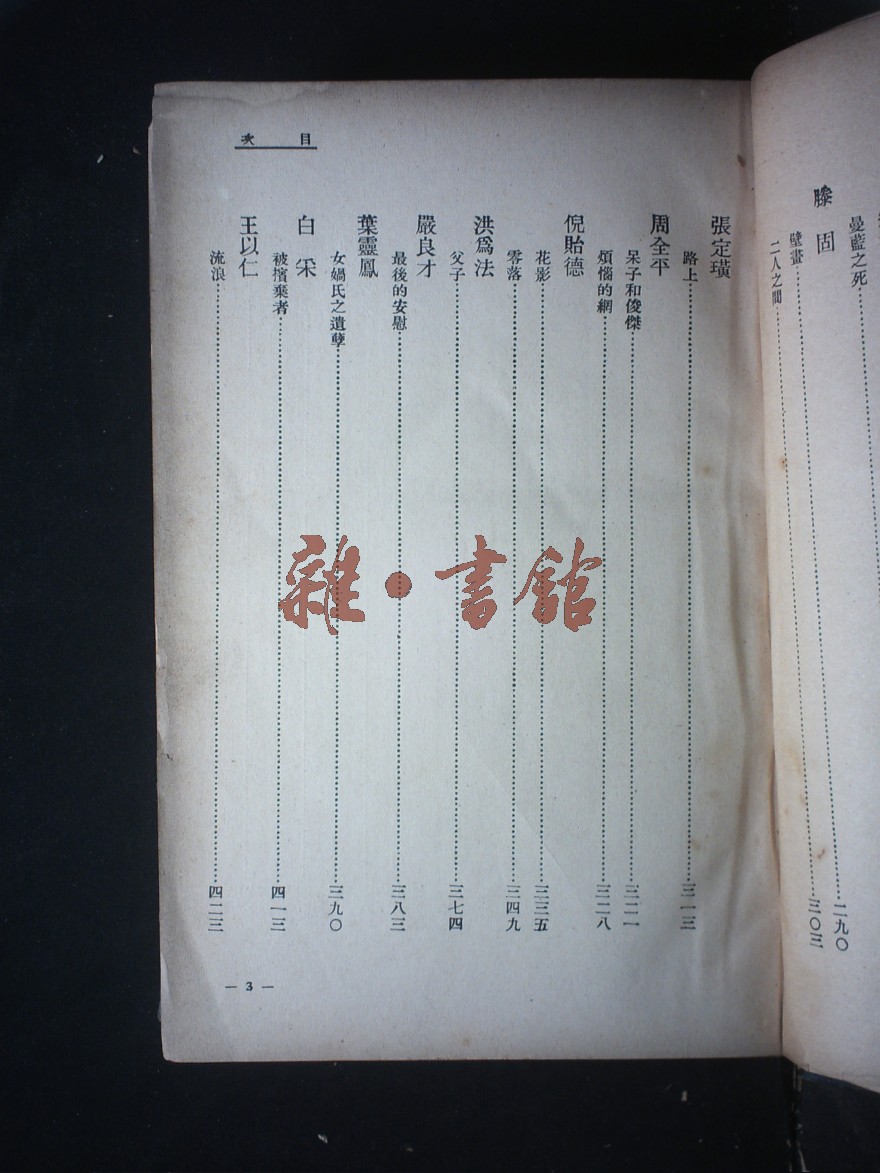 曼藍之死……二九〇
滕固
壁畫……三〇三
二人之間
目次
張定璜
路上……三一三
周全平
呆子和俊傑……三二二
煩惱的網……三二八
倪貽德
花影……三三五
零落……三四九
洪爲法
父子……三七四
嚴良才
最後的安慰……三八三
葉靈鳳
女媧氏之遺孽……三九〇
白采
被擯棄者……四一三
王以仁
流浪……四二三
— 3 —
雜·書館